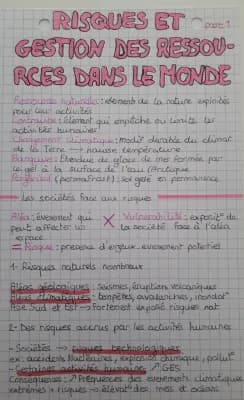 RISQUES ET
page 1
GESTION DES RESSOU-
RCES DANS LE MONDE
Ressources naturelles : élement de la nature exploités
pour leur activités
Contrainte : élement qui empêche ou limite les
activités humaines
Changement climatique : modif durable du climat
de la Terre → hausse température
Banquise : Etendue de glace de mer formée par
le gel à la surface de l'eau (Arctique
Pergélisol (permafrost) : sol gelé en permanence
Les sociétés face aux risques
Aléa : évenement qui × Vulnérabilité : exposit° de
peut affecter un la société face à l'aléa
espace
= Risque : présence d'enjeux, évenement potentiel
1- Risques naturels nombreux
Aléas géologiques : Séismes, éruptions volcaniques
Aléas climatiques : tempêtes, avalanches, inondat°
Asie Sud et Est → Fortement exposé risques nat
2- Des risques accrus par les activités humaines
- Sociétés → risques technologiques
ex : accidents nucléaires, explosion chimique, pollut°
- Certaines activités humaines ↗ GES
Conséquences : ↗ Fréquences des évenements climatiques
extrêmes + risques → élévat° des mers et océans